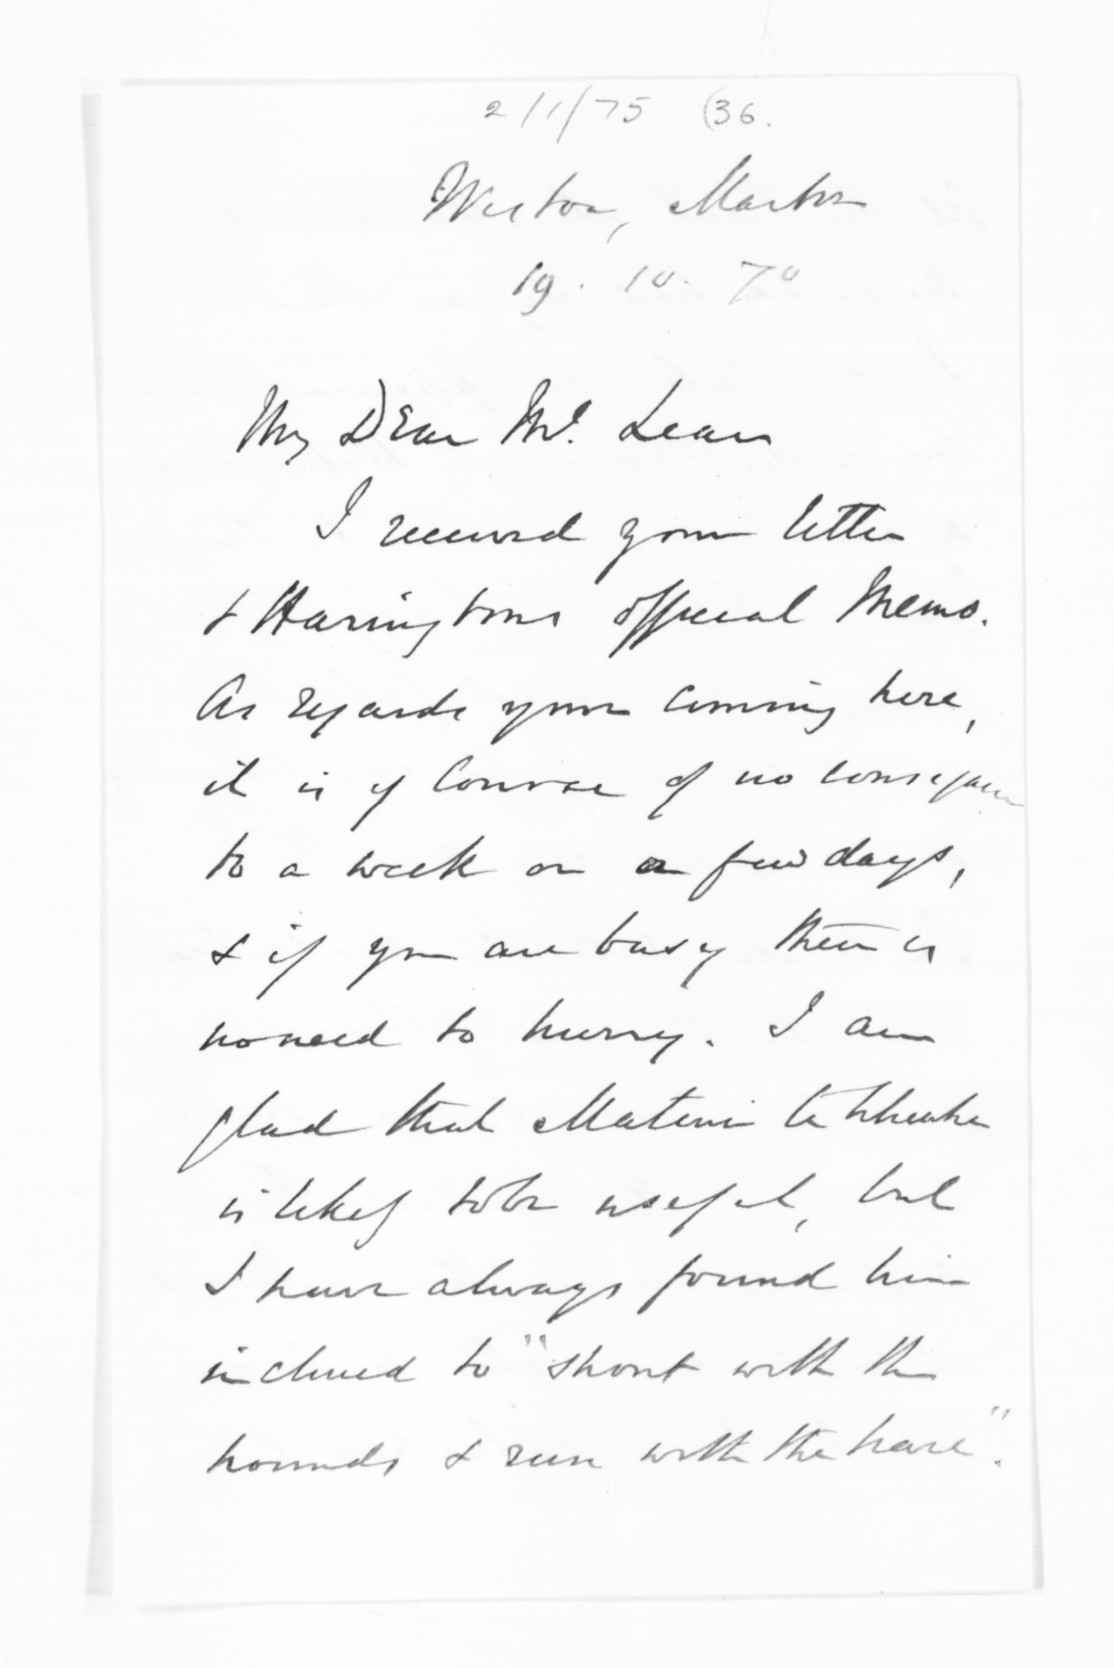 2/1/75 (36.
Westoe, Marton
19. 10. 70
My Dear McLean
I received your letter
& Haringtons official Memo.
As regards your coming here,
it is of course of no consequence
to a week or a few days,
& if you are busy there is
no need to hurry. I am
glad that Matene te Whiwhi
is likely to be useful, but
I have always found him
inclined to "shout with the
hounds & run with the hare".